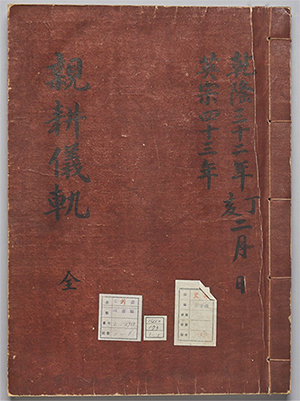 乾隆三十二年丁亥二月 日
英宗四十三年
親耕儀軌 全